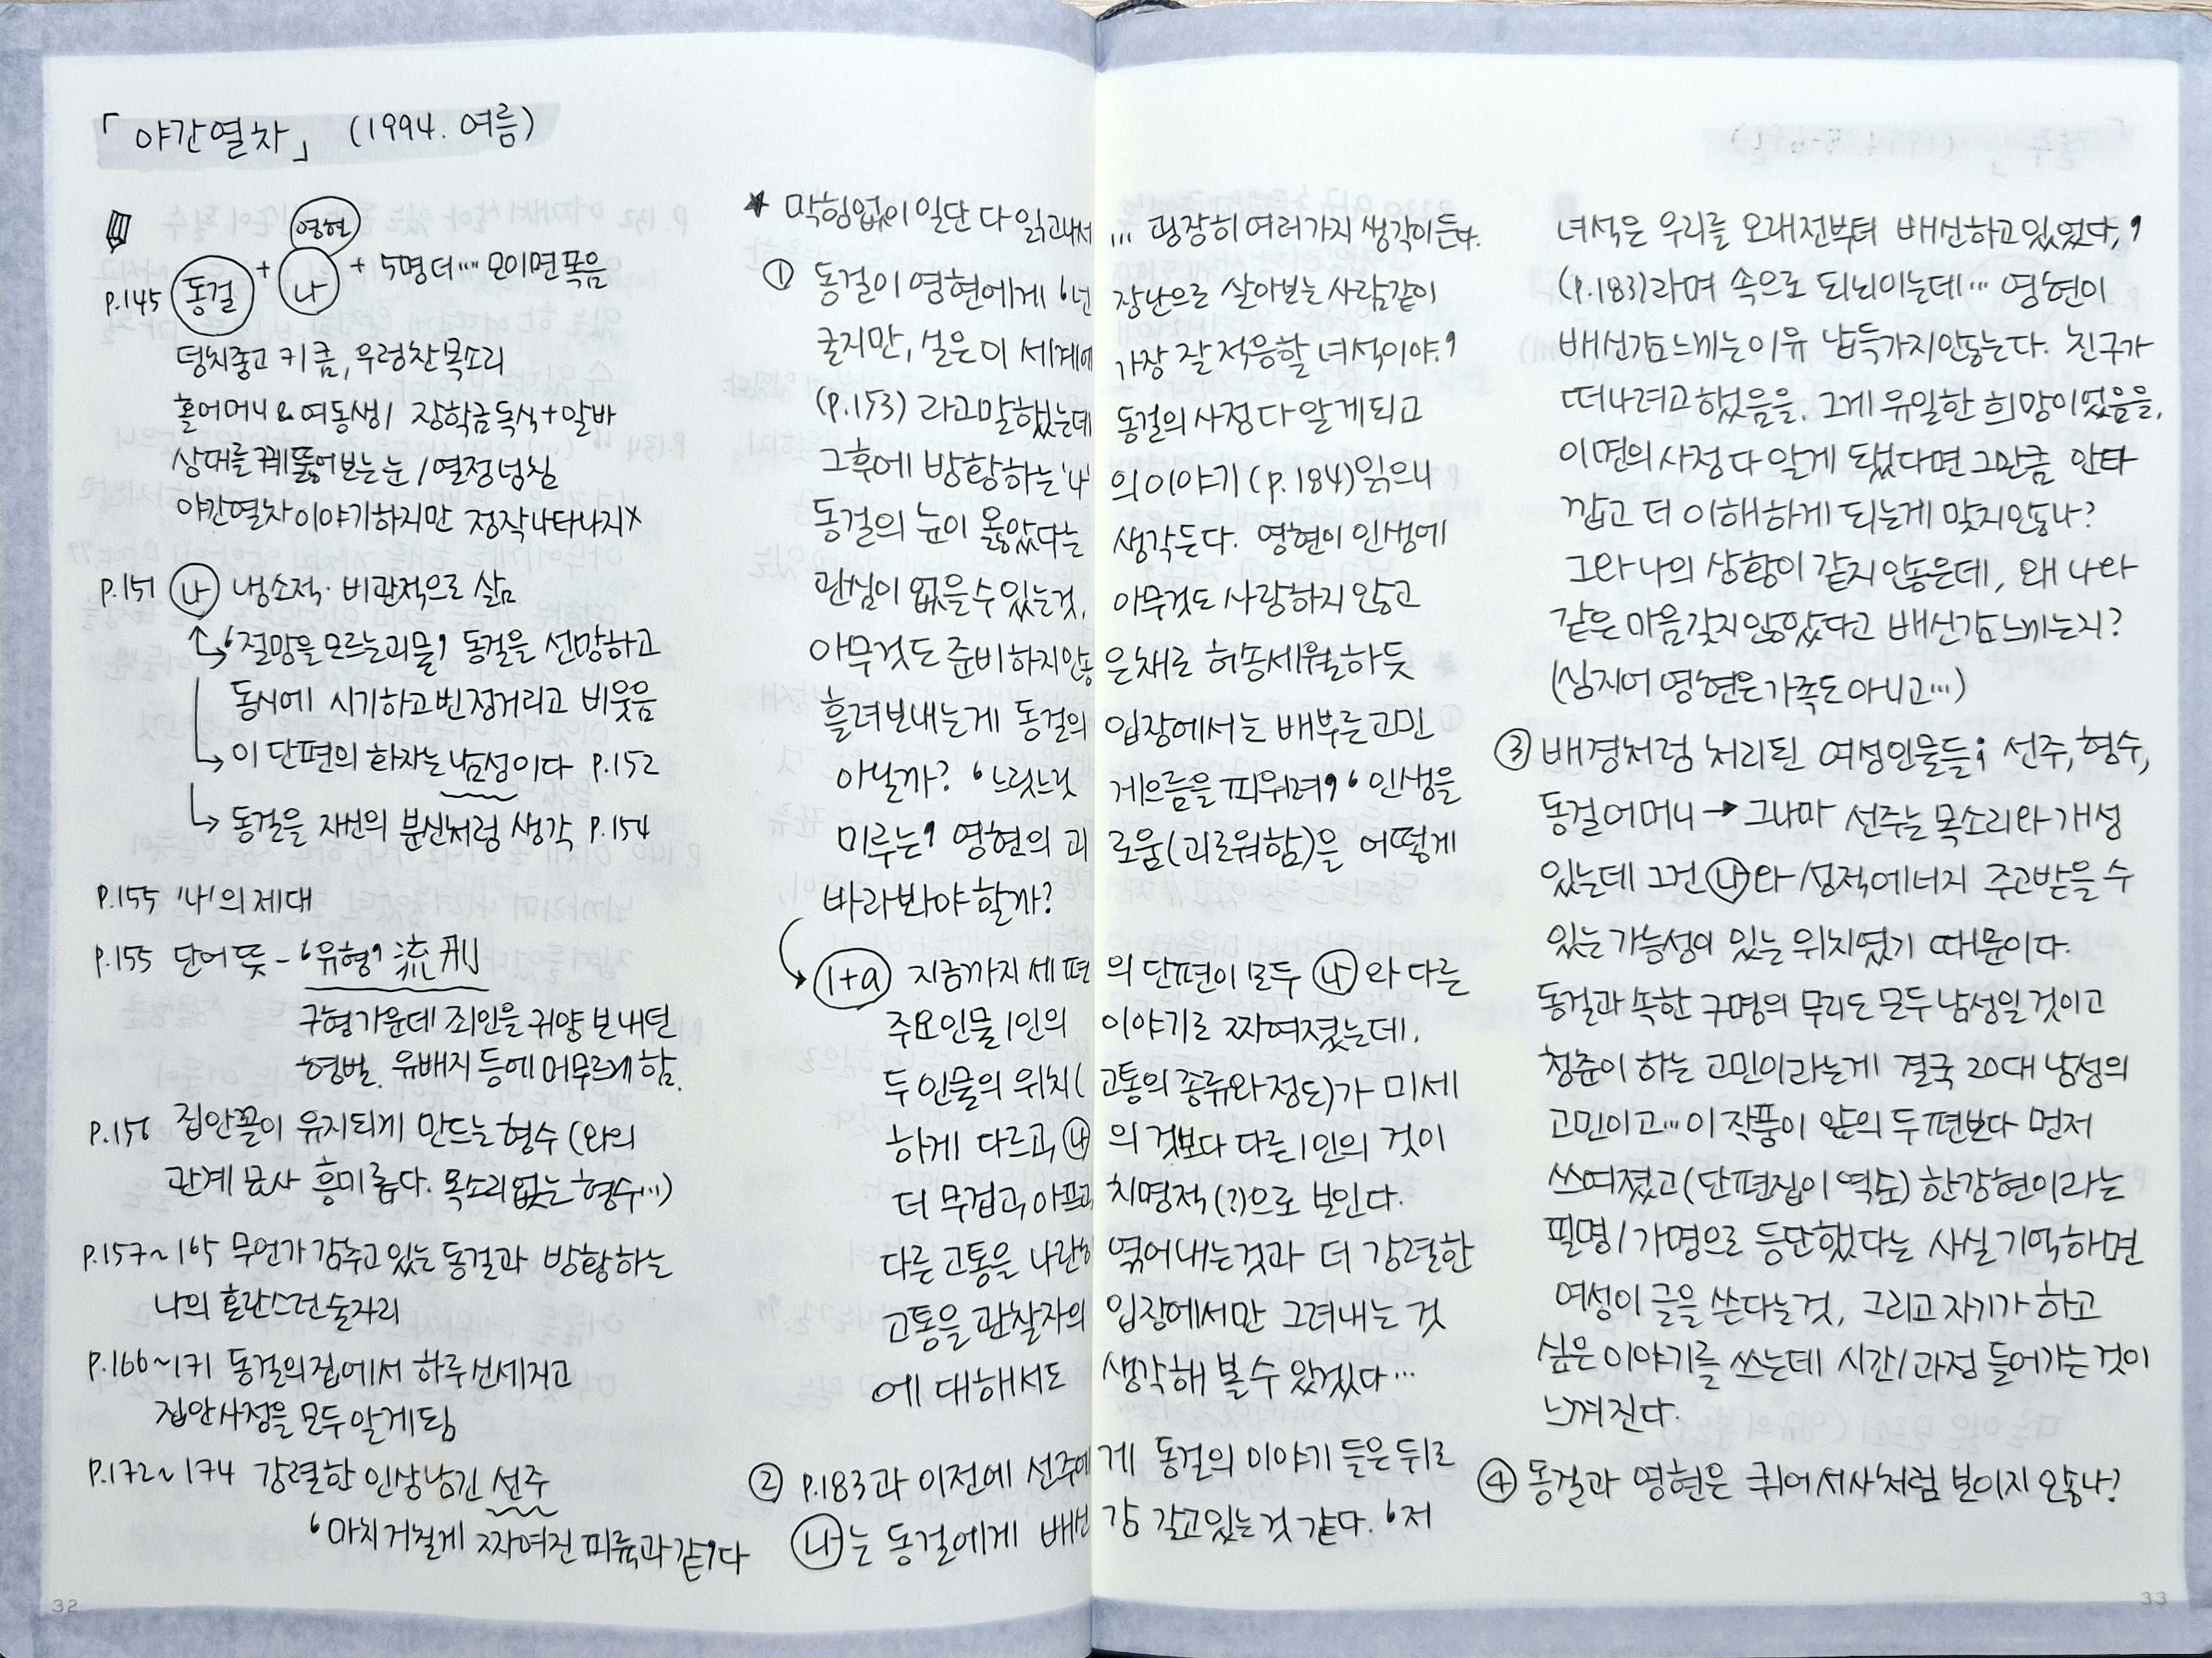 「야간열차」 (1994. 여름)
영현
p.145 동걸 + 나 + 5명 더… 모이면 폭음
덩치좋고 키큼, 우렁찬 목소리
홀어머니 & 여동생 / 장학금독식 + 알바
상대를 꿰뚫어보는 눈 / 열정넘침
야간열차 이야기하지만 정작 나타나지X
p.151 나 냉소적·비관적으로 삶
↳ '절망을 모르는 괴물' 동걸을 선망하고
동시에 시기하고 빈정거리고 비웃음
↳ 이 단편의 화자는 남성이다 p.152
↳ 동걸을 자신의 분신처럼 생각 p.154
p.155 '나'의 제대
p.155 단어 뜻 - '유형' 流刑
구형가운데 죄인을 귀양 보내던
형벌. 유배지 등에 머무르게 함.
p.156 집안꼴이 유지되게 만드는 형수 (와의
관계 묘사 흥미롭다. 목소리없는 형수…)
p.157~165 무언가 감추고 있는 동걸과 방황하는
나의 혼란스런 술자리
p.166~171 동걸의 집에서 하루 신세지고
집안사정을 모두 알게됨
p.172~174 강렬한 인상남긴 선주
'마치 거칠게 짜여진 피륙과 같'다
★ 막힘없이 일단 다 읽고나서 … 굉장히 여러가지 생각이 든다.
① 동걸이 영현에게 '넌 장난으로 살아보는 사람같이
굴지만, 실은 이 세계에 가장 잘 적응할 녀석이야.'
(p.153) 라고 말했는데 동걸의 사정 다 알게되고
그후에 방황하는 '나'의 이야기 (p.184) 읽으니
동걸의 눈이 옳았다는 생각든다. 영현이 인생에
관심이 없을 수 있는것, 아무것도 사랑하지 않고
아무것도 준비하지않은채로 허송세월하듯
흘려보내는게 동걸의 입장에서는 배부른 고민
아닐까? '느릿느릿 게으름을 피워려' '인생을
미루는' 영현의 괴로움(괴로워함)을 어떻게
바라봐야 할까?
1+a 지금까지 세 편의 단편이 모두 나와 다른
주요인물 1인의 이야기로 짜여졌는데,
두 인물의 위치(고통의 종류와 정도)가 미세
하게 다르고, 나의 것보다 다른 1인의 것이
더 무겁고, 아프고 치명적(?)으로 보인다.
다른 고통을 나란히 엮어내는것과 더 강렬한
고통을 관찰자의 입장에서만 그려내는 것
에 대해서도 생각해 볼 수 있겠다…
② p.183과 이전에 선주에게 동걸의 이야기 들은 뒤로
나는 동걸에게 배신감 갖고있는것 같다. '저
녀석은 우리를 오래전부터 배신하고 있었다,'
(p.183)라며 속으로 되뇌이는데… 영현이
배신감느끼는 이유 납득가지 않는다. 친구가
떠나려고 했음을. 그게 유일한 희망이었음을,
이면의 사정 다 알게 됐다면 그만큼 안타
깝고 더 이해하게 되는게 맞지않나?
그와 나의 상황이 같지 않은데, 왜 나와
같은 마음갖지 않았다고 배신감 느끼는지?
(심지어 영현은 가족도 아니고…)
③ 배경처럼 처리된 여성인물들; 선주, 형수,
동걸어머니 → 그나마 선주는 목소리와 개성
있는데 그건 나와 성적에너지 주고받을 수
있는 가능성이 있는 위치였기 때문이다.
동걸과 속한 구명의 무리도 모두 남성일 것이고
청춘이 하는 고민이라는게 결국 20대 남성의
고민이고… 이 작품이 앞의 두 편보다 먼저
쓰여졌고(단편집이 역순) 한강현이라는
필명/가명으로 등단했다는 사실 기억하면
여성이 글을 쓴다는것, 그리고 자기가 하고
싶은 이야기를 쓰는데 시간/과정 들어가는 것이
느껴진다.
④ 동걸과 영현은 퀴어서사처럼 보이지 않나?
32
33